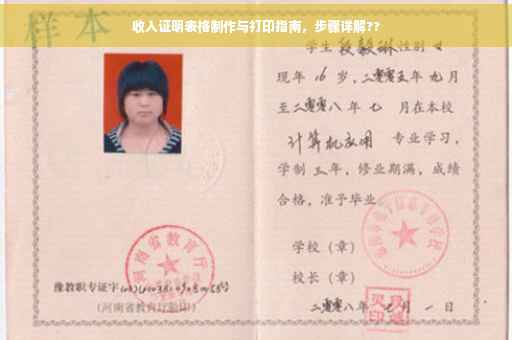 收入证明表格制作与打印指南，步骤详解??
样本
学生段毅琳性别女
现年16岁，二零零五年九月
至二零零八年七月在本校
计算机应用 专业学习，
学制三年，修业期满，成绩
合格，准予毕业
学校（章）
校长（章）
二零零八年 月一日
河南省教育厅
豫教职专证字
（河南省教育厅验印）